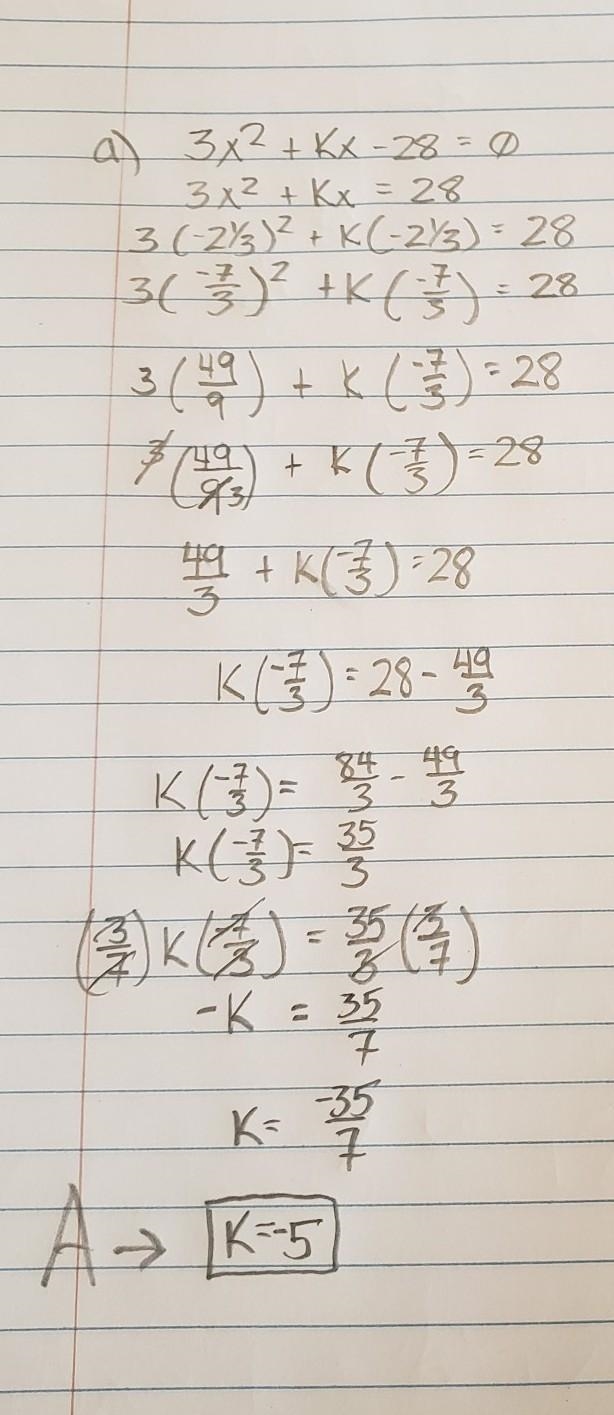 a) 3x² + Kx - 28 = 0
3x² + Kx = 28
3 (-2 1/3)² + K(-2 1/3) = 28
3(-7/3)² + K(-7/3) = 28
3(49/9) + K(-7/3) = 28
3(49/9 3) + K(-7/3) = 28
49/3 + K(-7/3) = 28
K(-7/3) = 28 - 49/3
K(-7/3) = 84/3 - 49/3
K(-7/3) = 35/3
(3/7) K(-7/3) = 35/3 (3/7)
-K = 35/7
K = -35/7
A → K=-5